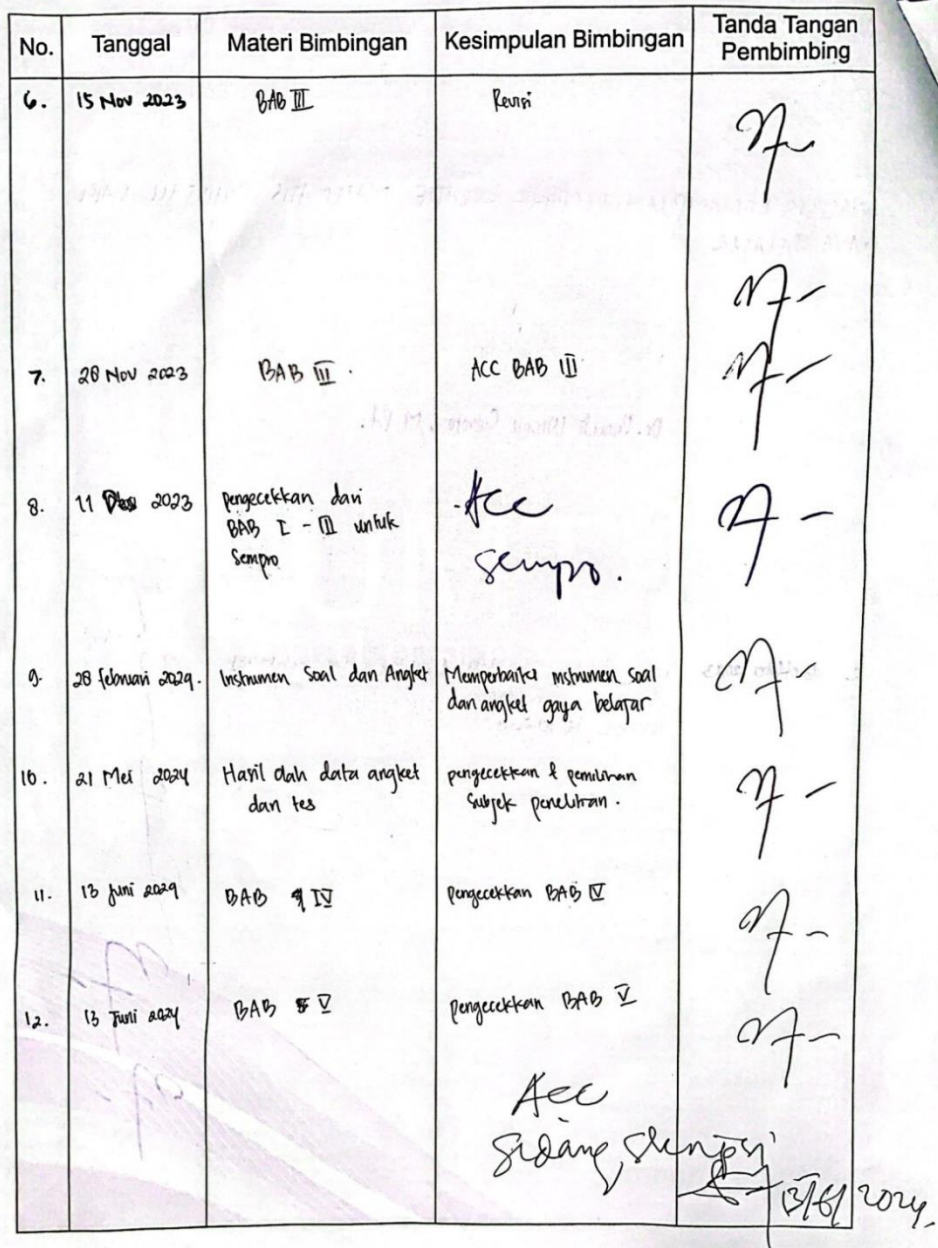 No. Tanggal Materi Bimbingan Kesimpulan Bimbingan Tanda Tangan Pembimbing
6. 15 Nov 2023 BAB III Revisi
7. 28 Nov 2023 BAB III. ACC BAB III
8. 11 Des 2023 pengecekkan dari - Acc
BAB I - III untuk
Sempro sempro.
9. 28 februari 2024. Instrumen Soal dan Angket Memperbaiki instrumen soal
dan angket gaya belajar
10. 21 Mei 2024 Hasil olah data angket pengecekkan & pemilihan
dan tes Subjek penelitian.
11. 13 Juni 2024 BAB IV Pengecekkan BAB IV
12. 13 Juni 2024 BAB V Pengecekkan BAB V
Acc
Sidang Skripsi
13/6/2024.